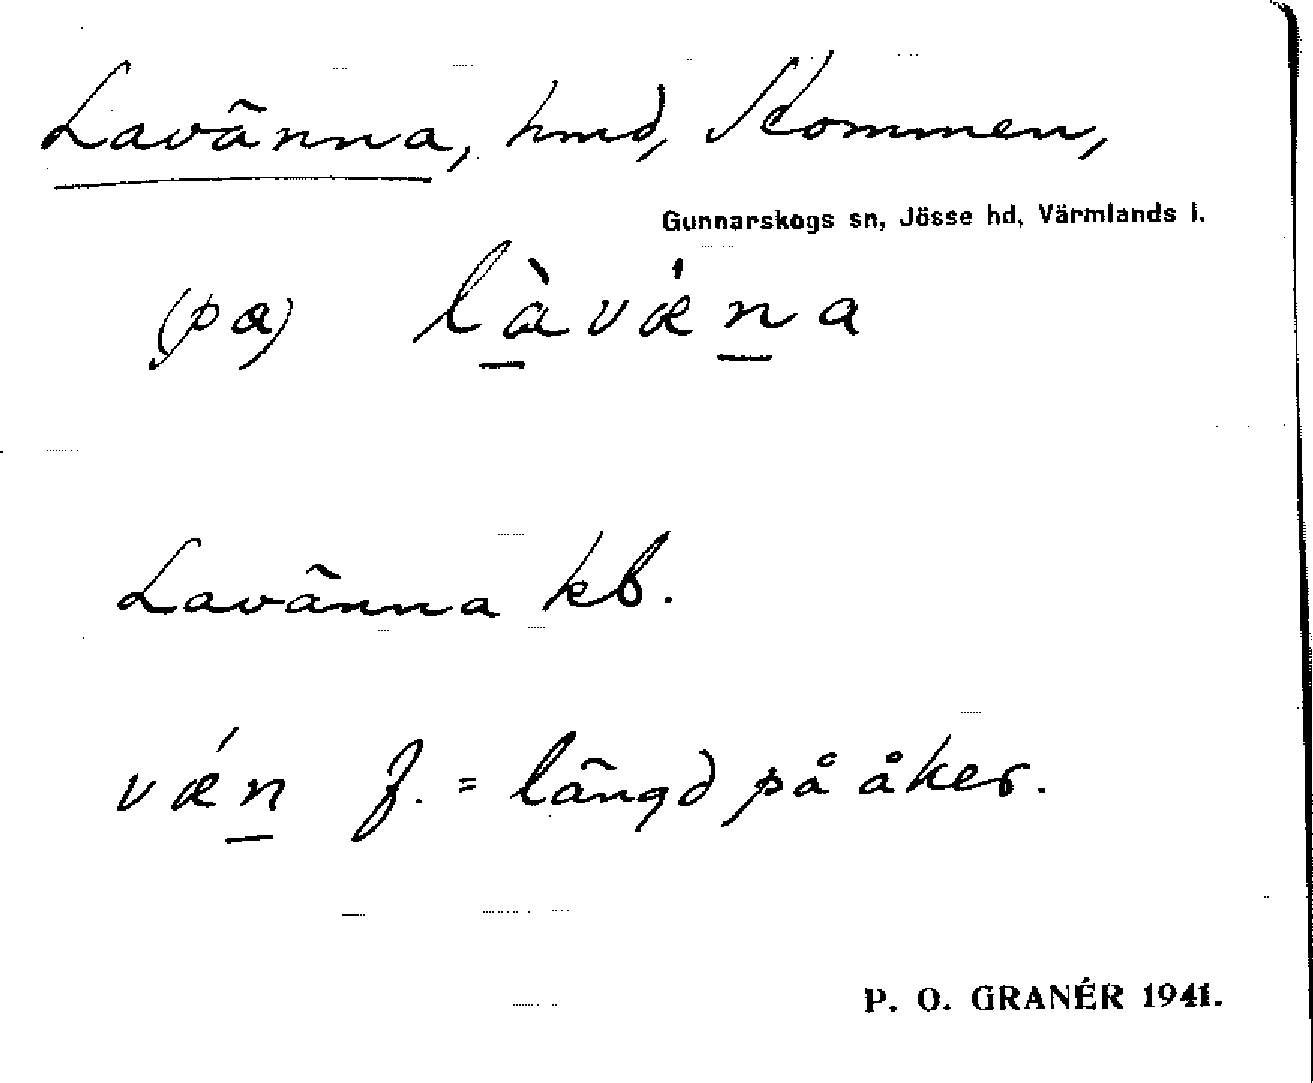 Lavänna, hmd, Kommen,
Gunnarskogs sn, Jösse hd, Värmlands l.
(pa) làvǽna
Lavänna kb.
vǽn f. = längd på åker.
P. O. GRANÉR 1941.